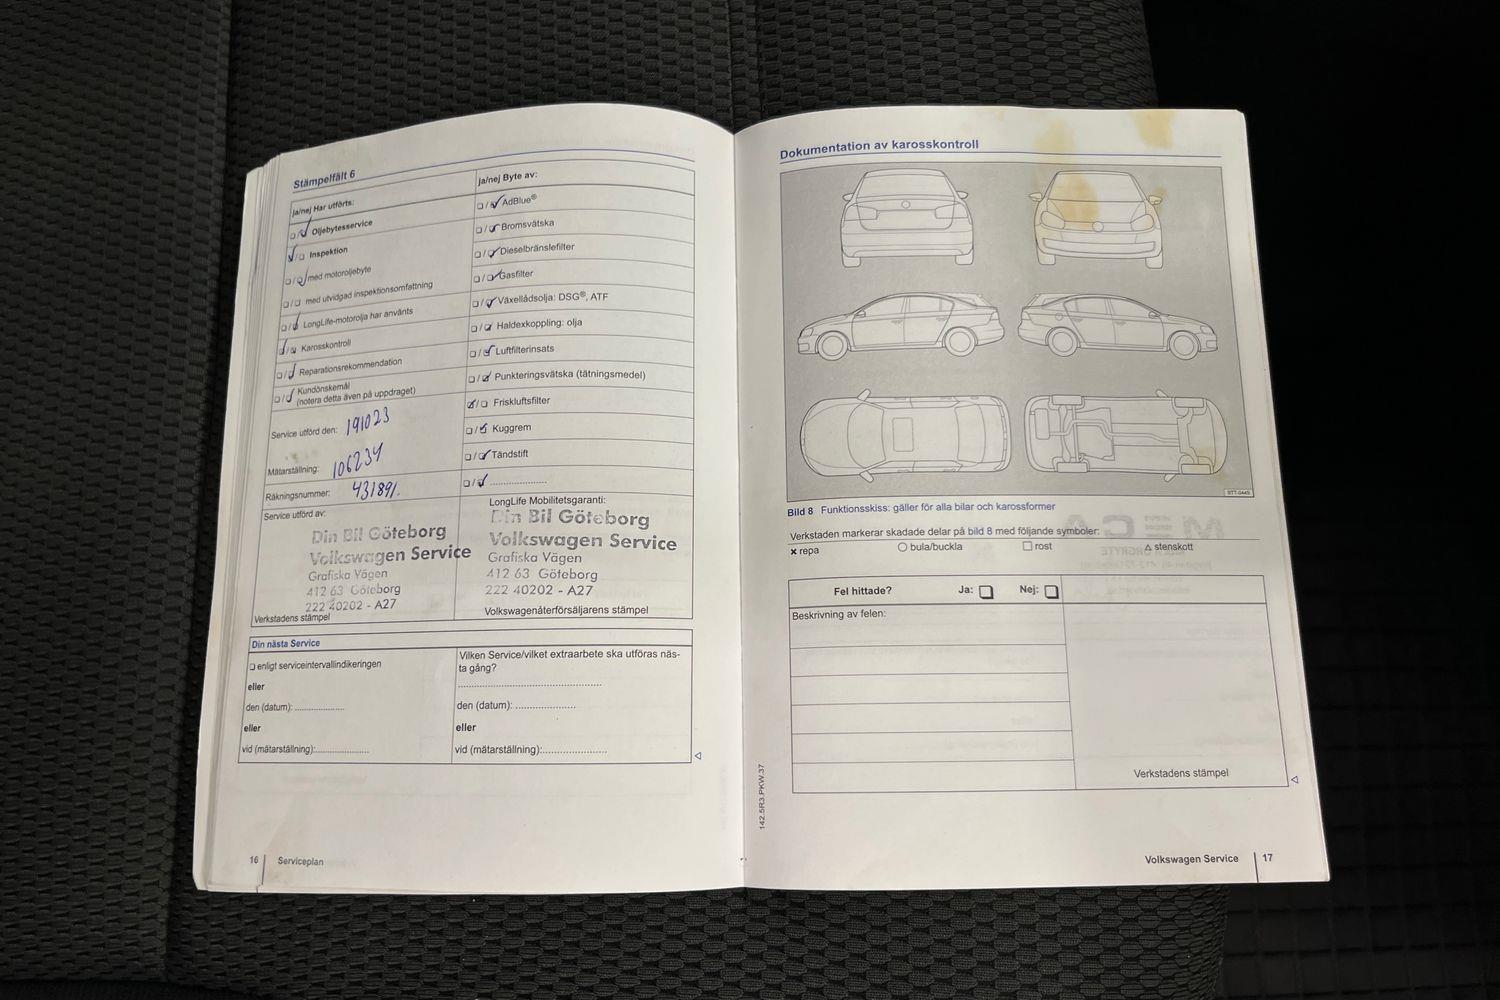 Stämpelfält 6
ja/nej Har utförts:
❏/❏ Oljebytesservice
❏/❏ Inspektion
❏/❏ med motoroljebyte
❏/❏ med utvidgad inspektionsomfattning
❏/❏ LongLife-motorolja har använts
❏/❏ Karosskontroll
❏/❏ Reparationsrekommendation
❏/❏ Kundönskemål
(notera detta även på uppdraget)
Service utförd den: 191023
Mätarställning: 106234
Räkningsnummer: 431891.
Service utförd av:
Din Bil Göteborg
Volkswagen Service
Grafiska Vägen
412 63 Göteborg
222 40202 - A27
Verkstadens stämpel
ja/nej Byte av:
❏/❏ AdBlue®
❏/❏ Bromsvätska
❏/❏ Dieselbränslefilter
❏/❏ Gasfilter
❏/❏ Växellådsolja: DSG®, ATF
❏/❏ Haldexkoppling: olja
❏/❏ Luftfilterinsats
❏/❏ Punkteringsvätska (tätningsmedel)
❏/❏ Friskluftsfilter
❏/❏ Kuggrem
❏/❏ Tändstift
❏/❏ ....................
LongLife Mobilitetsgaranti:
Din Bil Göteborg
Volkswagen Service
Grafiska Vägen
412 63 Göteborg
222 40202 - A27
Volkswagenåterförsäljarens stämpel
Din nästa Service
❏ enligt serviceintervallindikeringen
eller
den (datum): ....................
eller
vid (mätarställning):....................
Vilken Service/vilket extraarbete ska utföras näs-
ta gång?
..................................................
den (datum): ....................
eller
vid (mätarställning):.......................
16 Serviceplan
Dokumentation av karosskontroll
Bild 8 Funktionsskiss: gäller för alla bilar och karossformer
Verkstaden markerar skadade delar på bild 8 med följande symboler:
✗ repa ○ bula/buckla □ rost △ stenskott
Fel hittade? Ja: ❏ Nej: ❏
Beskrivning av felen:
Verkstadens stämpel
142.5R3.PKW.37
Volkswagen Service 17